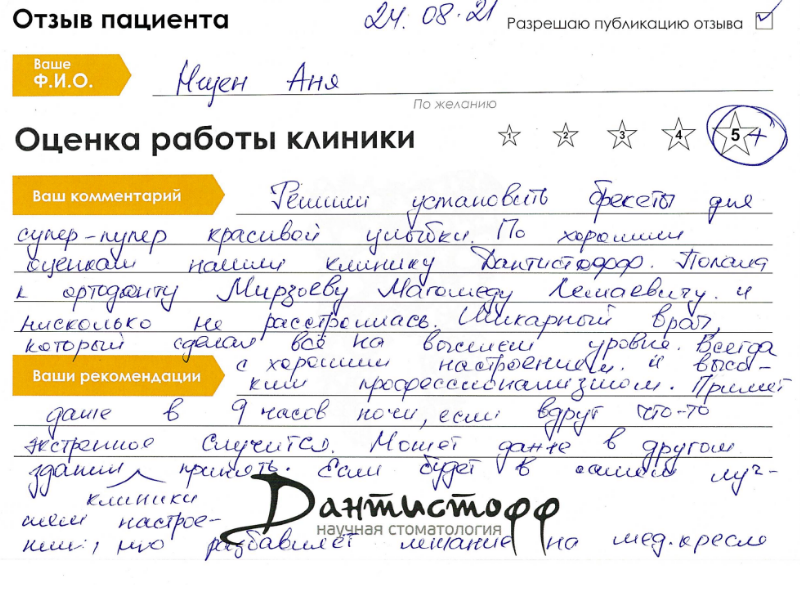 Отзыв пациента
24.08.21
Разрешаю публикацию отзыва
Ваше
Ф.И.О.
Аня
По желанию
Оценка работы клиники
1 2 3 4 5+
Ваш комментарий
Решили установить брекеты для
супер-пупер красивой улыбки. По хорошим
оценкам нашли клинику Дантистофф. Попала
к ортодонту Мирзоеву Магомеду и
нисколько не расстроилась. Шикарный врач,
который сделал всё на высшем уровне. Всегда
с хорошим настроением и высо-
Ваши рекомендации
ким профессионализмом. Примет
даже в 9 часов ночи, если вдруг что-то
экстренное случится. Может даже в другом
здании принять. Если будет в самом луч-
клиники
шем настрое-
нии, то разбавляет лежание на мед.кресле
Дантистофф
научная стоматология